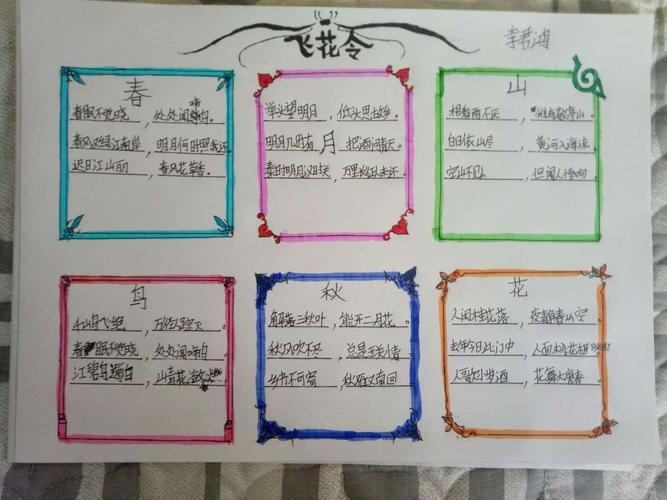 飞花令
李君鸿
春
春眠不觉晓，处处闻啼鸟。
春风又绿江南岸，明月何时照我还。
迟日江山丽，春风花草香。
月
举头望明月，低头思故乡。
明月几时有，把酒问青天。
秦时明月汉时关，万里长征人未还。
山
相看两不厌，只有敬亭山。
白日依山尽，黄河入海流。
空山不见人，但闻人语响。
鸟
千山鸟飞绝，万径人踪灭。
春眠不觉晓，处处闻啼鸟。
江碧鸟逾白，山青花欲
秋
解落三秋叶，能开二月花。
秋风吹不尽，总是玉关情。
乡书不可寄，秋雁又南回
花
人闲桂花落，夜静春山空。
去年今日此门中，人面桃花相
花舞大唐春。